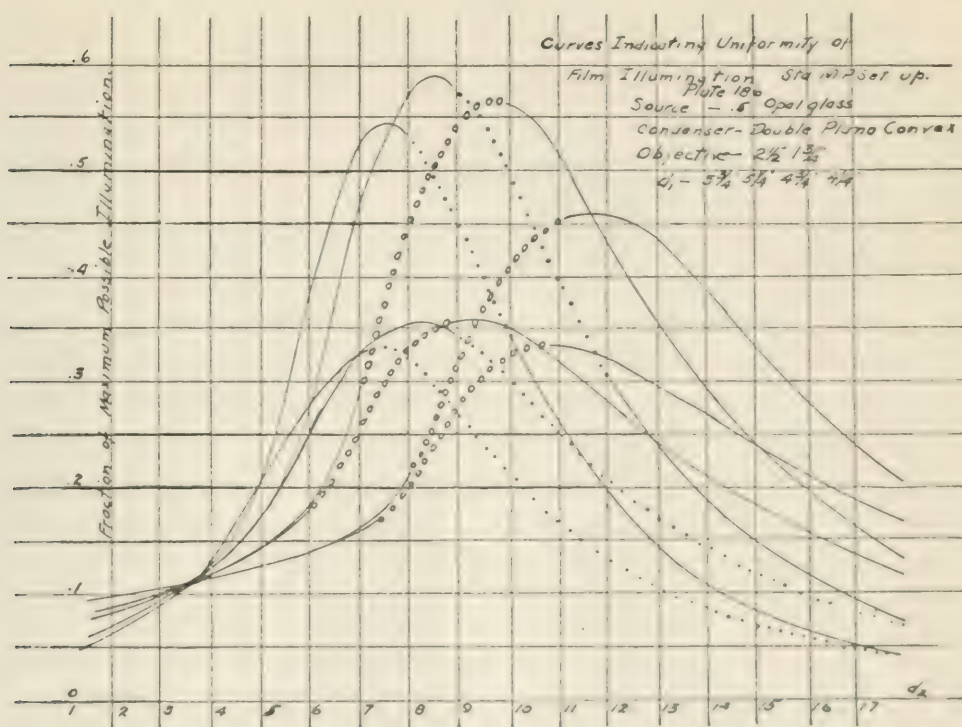 Curves Indicating Uniformity of
Film Illumination Std M.P. Set up.
Plate 18b
Source - .5 Opal glass
Condenser - Double Plano Convex
Objective - 2½" 1¾"
d₁ - 5¾" 5¼" 4¾" 4¼"
Fraction of Maximum Possible Illumination.
.6
.5
.4
.3
.2
.1
0
1 2 3 4 5 6 7 8 9 10 11 12 13 14 15 16 17 d₂